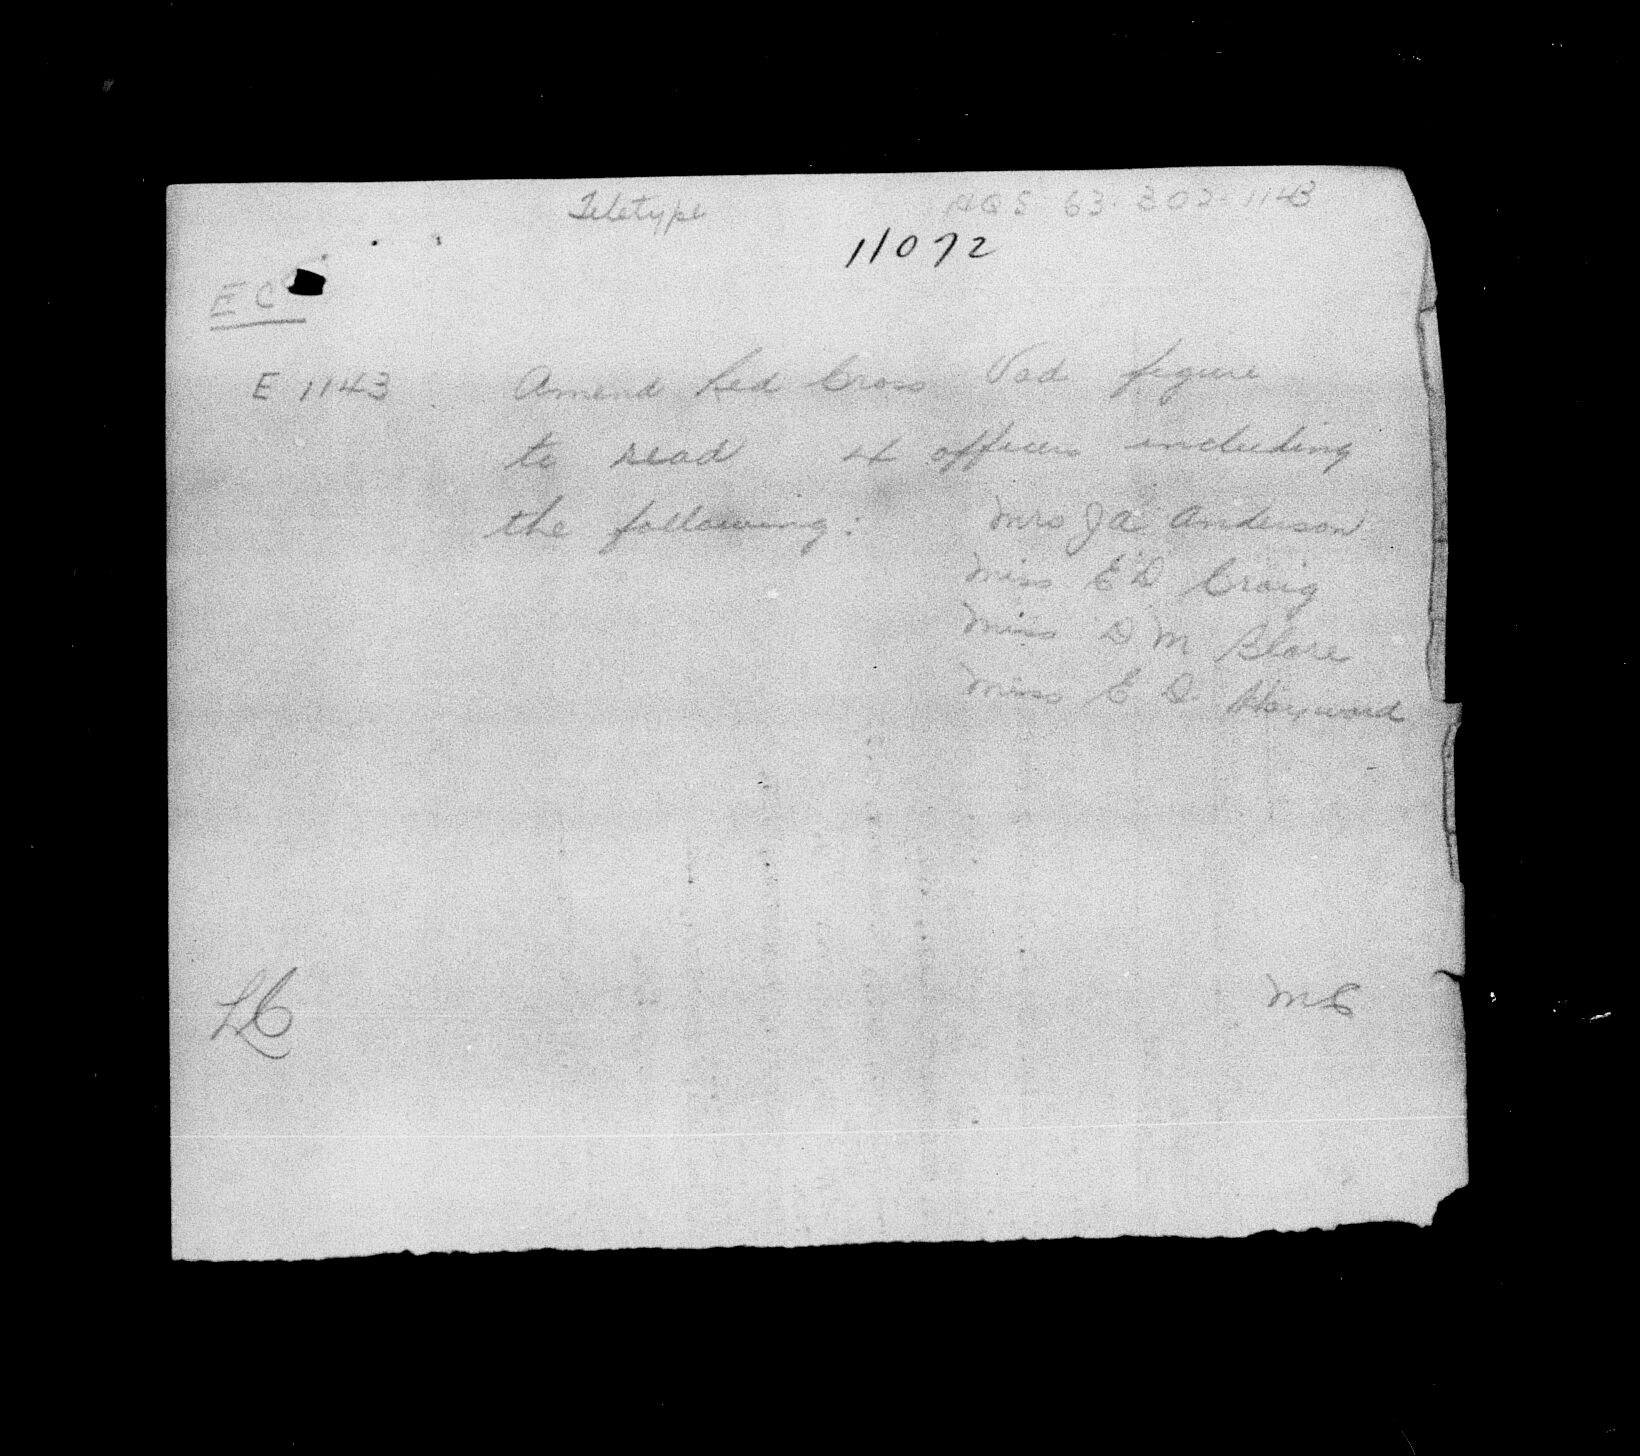 Teletype HQS 63-302-1143
11072
EC
E 1143 Amend Red Cross Vad figure
to read 4 officers including
the following: Mrs J A Anderson
Miss E D Craig
Miss D M Blore
Miss E D Hayward
LC MC